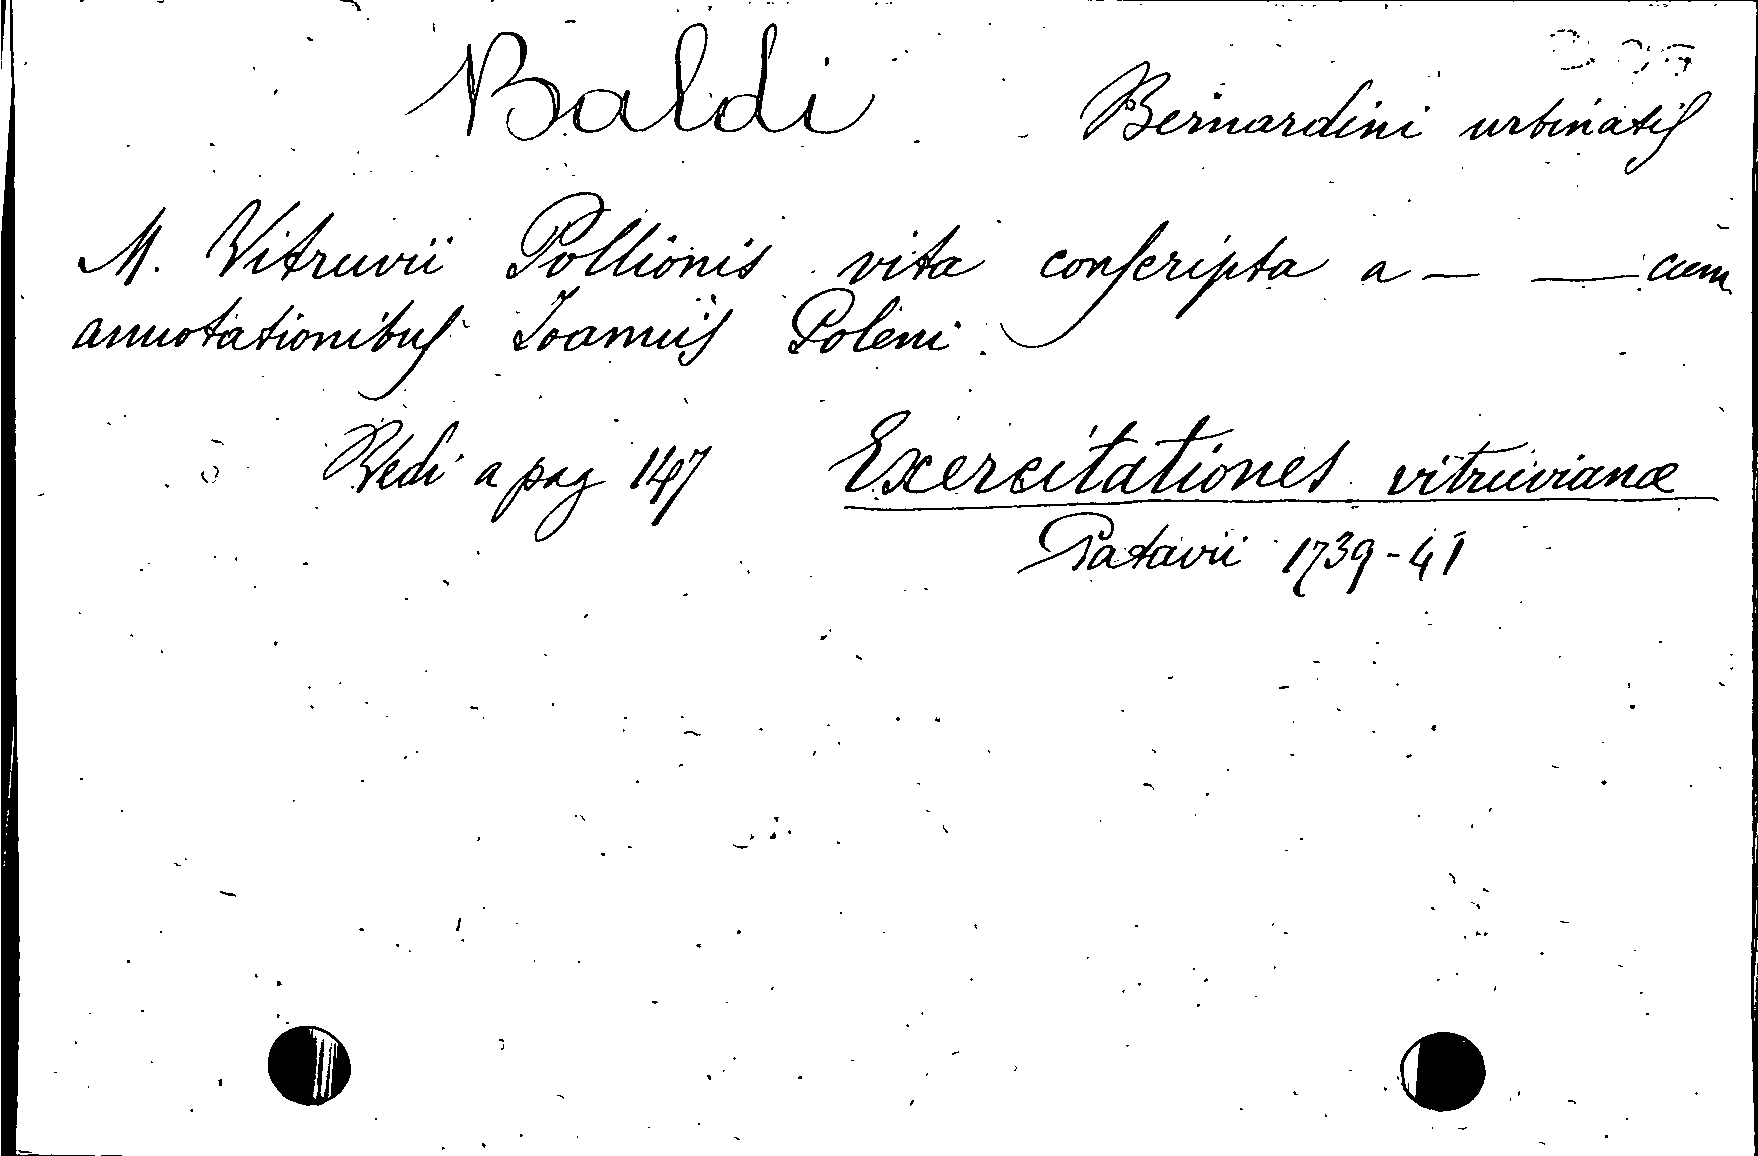 Baldi Bernardini urbinatis
M. Vitruvii Pollionis vita conscripta a — — cum
annotationibus Ioannis Poleni.
Vedi a pag 147 Exercitationes vitruvianæ
Patavii 1739-41